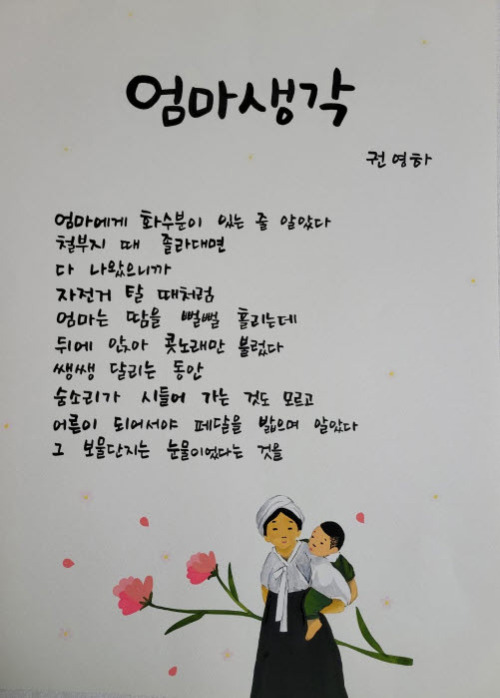 엄마생각
권영하
엄마에게 화수분이 있는 줄 알았다
철부지 때 졸라대면
다 나왔으니까
자전거 탈 때처럼
엄마는 땀을 뻘뻘 흘리는데
뒤에 앉아 콧노래만 불렀다
쌩쌩 달리는 동안
숨소리가 시들어 가는 것도 모르고
어른이 되어서야 페달을 밟으며 알았다
그 보물단지는 눈물이었다는 것을